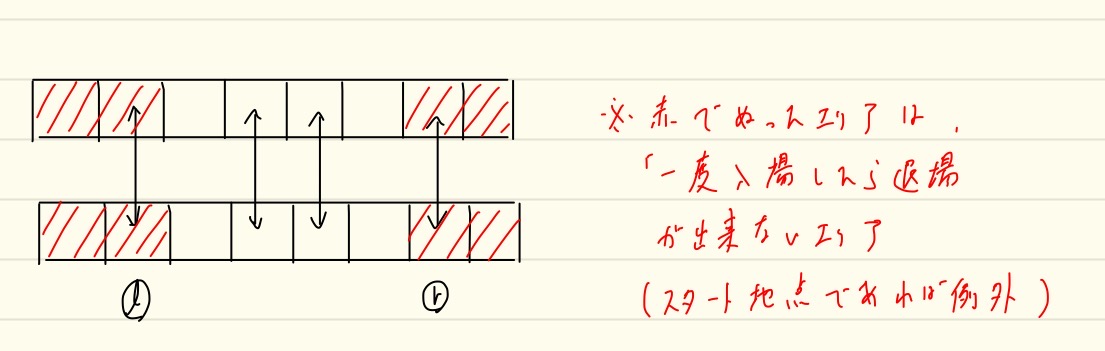 ※ 赤でぬったエリアは、
「一度入場したら退場
が出来ないエリア
(スタート地点であれば例外)
l
r